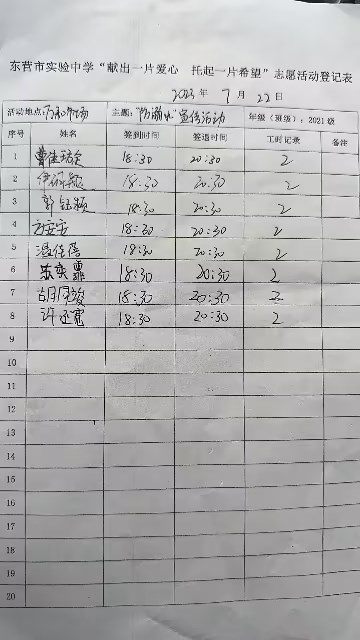 东营市实验中学“献出一片爱心 托起一片希望”志愿活动登记表
2023 年 7 月 22 日
活动地点: 主题:“防溺水”宣传活动 年级(班级): 2021级
序号 姓名 签到时间 签退时间 工时记录 备注
1 18:30 20:30 2
2 18:30 20:30 2
3 郭钰颖 18:30 20:30 2
4 18:30 20:30 2
5 温佳蓓 18:30 20:30 2
6 18:30 20:30 2
7 18:30 20:30 2
8 18:30 20:30 2
9
10
11
12
13
14
15
16
17
18
19
20